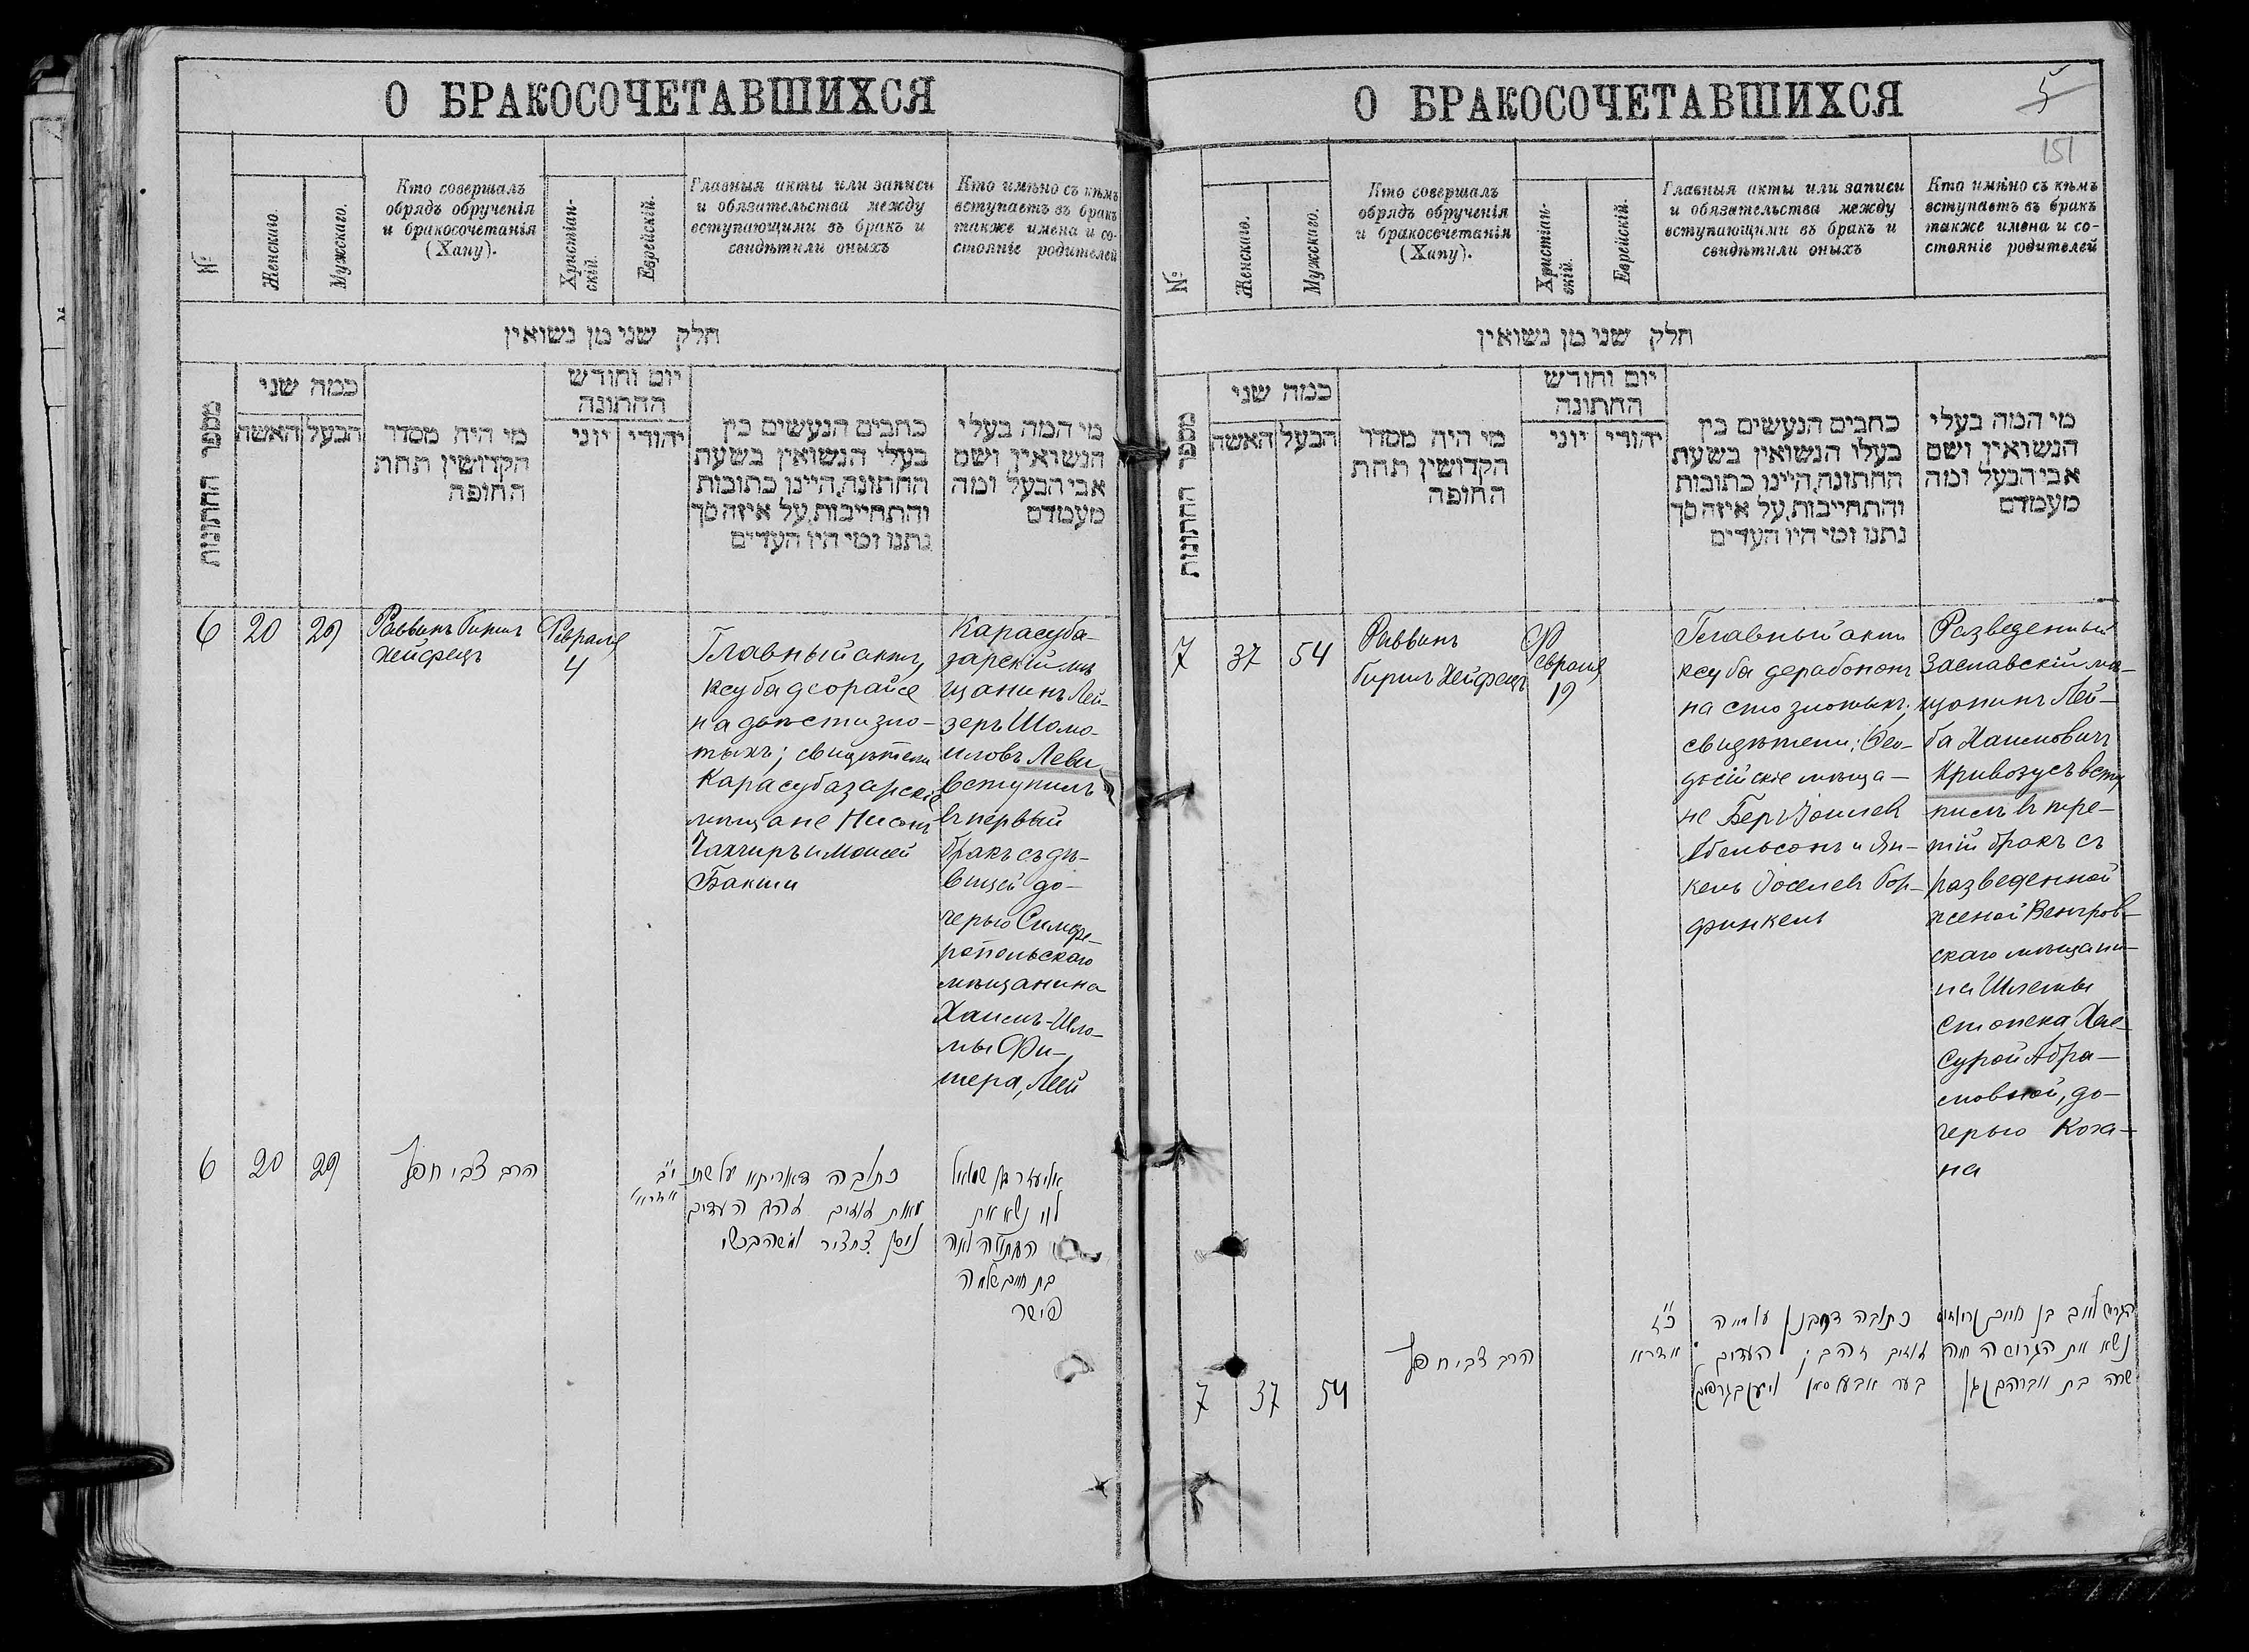 О БРАКОСОЧЕТАВШИХСЯ
№
Женскаго.
Мужскаго.
Кто совершалъ
обрядъ обрученія
и бракосочетанія
(Хапу).
Христіан-
скій.
Еврейскій.
Главныя акты или записи
и обязательства между
вступающими въ бракъ и
свидѣтили оныхъ
Кто имѣно съ кѣмъ
вступаетъ въ бракъ
также имена и со-
стояніе родителей
חלק שני מן נשואין
מספר החתונות
כמה שני
האשה
הבעל
מי היה מסדר
הקדושין תחת
החופה
יום וחודש
החתונה
יוני
יהודי
כתבים הנעשים בין
בעלי הנשואין בשעת
החתונה, היינו כתובות
והתחייבות, על איזה סך
נתנו ומי היו העדים
מי המה בעלי
הנשואין ושם
אבי הבעל ומה
מעמדם
6
20
29
Раввинъ Бирил
Хейфецъ
Февраля
4
Главный актъ,
ксуба деорайсе
на двѣсти зло-
тыхъ; свидѣтели
Карасубазарскіе
мѣщане Нисонъ
Чахчиръ и Моисей
Бакши
Карасуба-
зарскій мѣ
щанинъ Лей-
зеръ Шомо-
иловъ Леви
вступилъ
въ первый
бракъ съ дѣ-
вицей до-
черью Симфе-
ропольскаго
мѣщанина
Хаимъ-Шло-
мы Фи-
шера, Леей
6
20
29
הרב צבי חפץ
י״ב
אדר א׳
כתובה דאוריתא על שתי
מאות זהובים העדים
ניסן צחציר ומשה בכשי
אליעזר בן שמואל
לוי נשא את
הבתולה לאה
בת חיים שלמה
פישר
О БРАКОСОЧЕТАВШИХСЯ
5
151
№
Женскаго.
Мужскаго.
Кто совершалъ
обрядъ обрученія
и бракосочетанія
(Хапу).
Христіан-
скій.
Еврейскій.
Главныя акты или записи
и обязательства между
вступающими въ бракъ и
свидѣтили оныхъ
Кто имѣно съ кѣмъ
вступаетъ въ бракъ
также имена и со-
стояніе родителей
חלק שני מן נשואין
מספר החתונות
כמה שני
האשה
הבעל
מי היה מסדר
הקדושין תחת
החופה
יום וחודש
החתונה
יוני
יהודי
כתבים הנעשים בין
בעלו הנשואין בשעת
החתונה, היינו כתובות
והתחייבות, על איזה סך
נתנו ומי היו העדים
מי המה בעלי
הנשואין ושם
אבי הבעל ומה
מעמדם
7
37
54
Раввинъ
Бирилъ Хейфецъ
Ф
евраля
19
Главный актъ
ксуба дерабононъ
на сто злотыхъ;
свидѣтели: Ѳео-
досійскіе мѣща-
не Беръ Іоилев
Абельсонъ и Ян-
кель Іоселев Гор-
финкель
Разведенный
Заславскій мѣ-
щанинъ Лей-
ба Хаимовичъ
Кривозусъ всту
пилъ въ тре-
тій бракъ съ
разведенной
женой Венгров-
скаго мѣщани-
на Шлемы
Стопека Хае-
Сурой Абра-
мовной, до-
черью Кога-
на
7
37
54
הרב צבי חפץ
אדר א׳
כתובה דרבנן על מאה
זהובים העדים
בער אבעלסאן
הגרוש לייב בן חיים
נשא את הגרושה חיה
שרה בת אברהם כהן